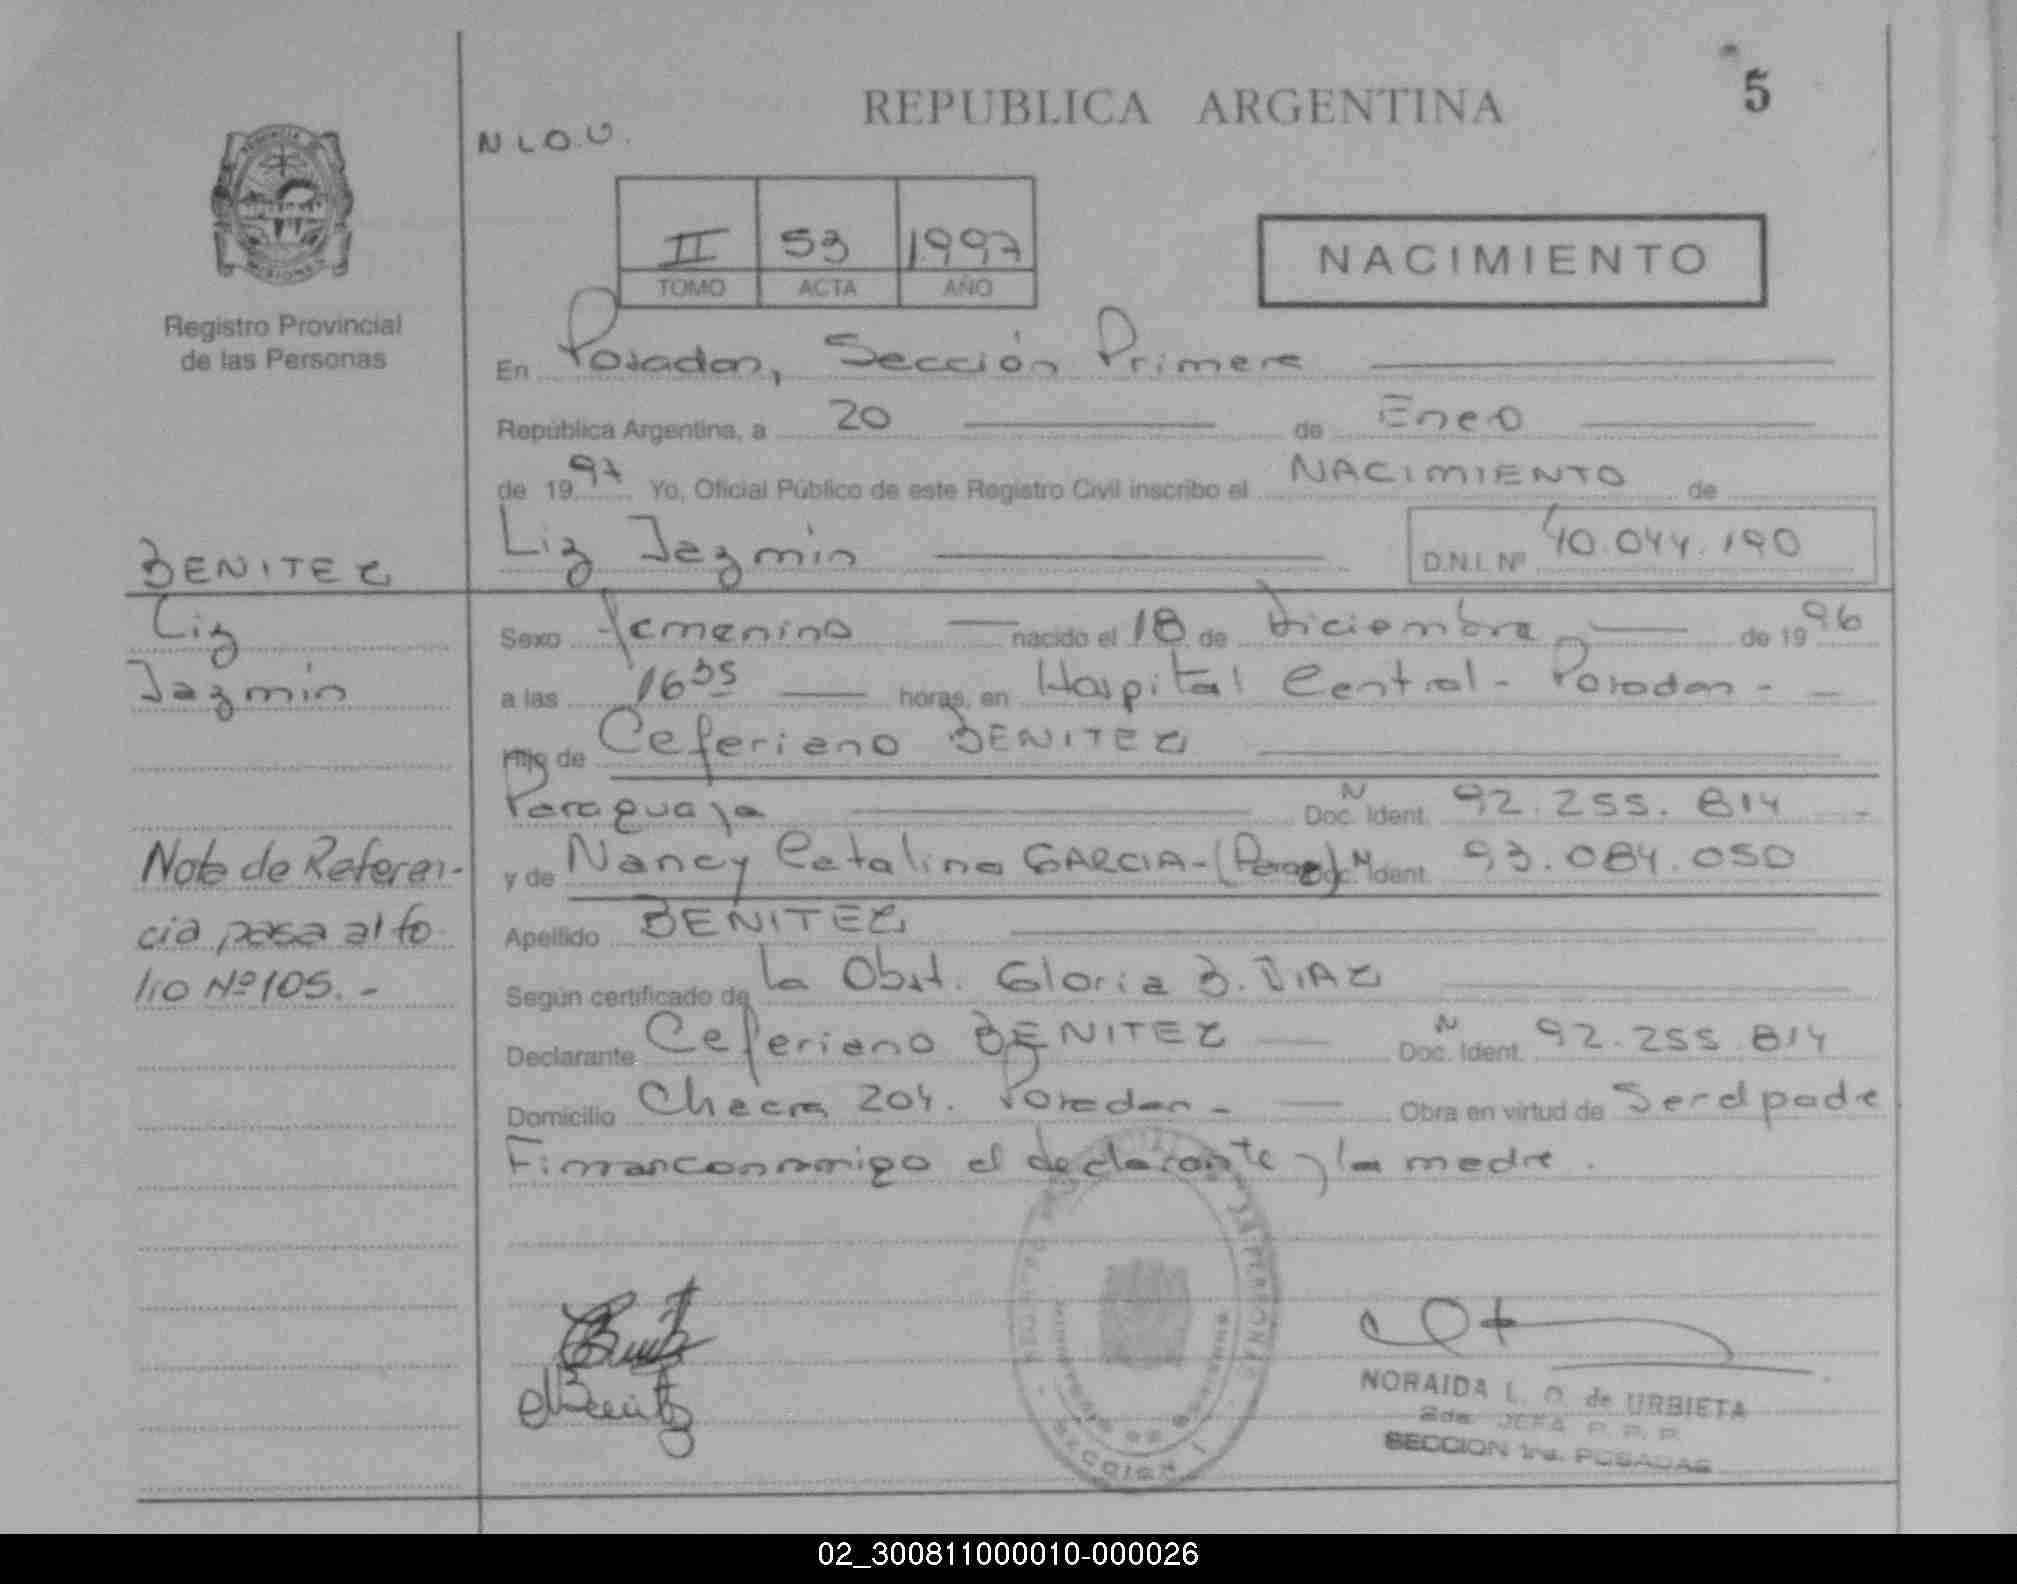 REPUBLICA ARGENTINA
5
N L O. U.
II 53 1997
TOMO ACTA AÑO
NACIMIENTO
Registro Provincial
de las Personas
En Posadas, Sección Primera
República Argentina, a 20 de Enero
de 1997 Yo, Oficial Público de este Registro Civil inscribo el NACIMIENTO de
Liz Jazmin D.N.I. Nº 40.044.190
BENITEZ
Liz
Jazmin
Sexo femenino nacido el 18 de Diciembre de 1996
a las 16 35 horas, en Hospital Central - Posadas -
Hijo de Ceferiano BENITEZ
Paraguaya Doc. Ident. N 92.255.814
y de Nancy Catalina GARCIA - (Parag) Doc. Ident. N 93.084.050
Apellido BENITEZ
Según certificado de la Obst. Gloria B. DIAZ
Declarante Ceferiano BENITEZ Doc. Ident. N 92.255.814
Domicilio Chacra 204. Posadas - Obra en virtud de Ser el padre
Firman conmigo el declarante y la madre.
Nota de Referen-
cia pasa al fo
lio Nº 105. -
NORAIDA L. O. de URBIETA
2da. JEFA R. P. P.
SECCION 1ra. POSADAS
SECCION 1
02_300811000010-000026